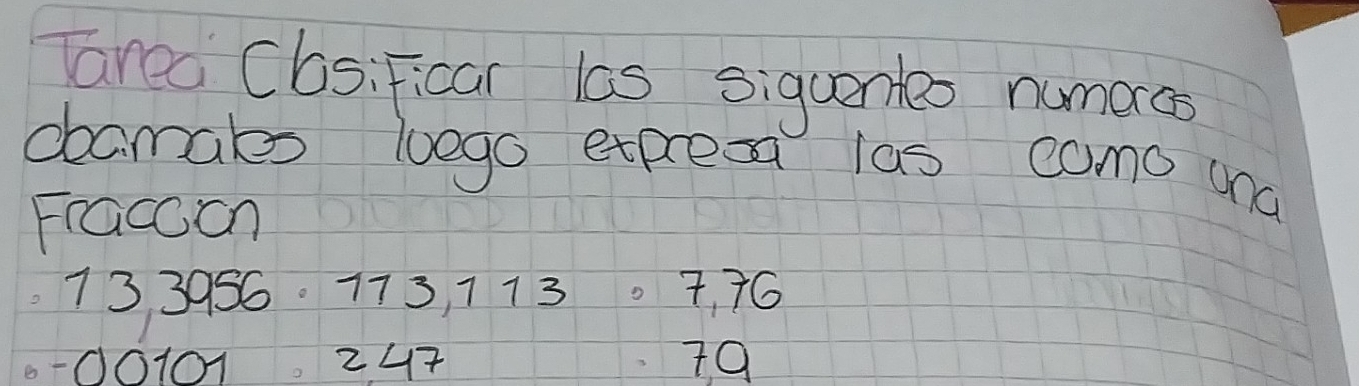 Tarea Clasificar las siguentes numeros
decimales luego expresa las como una
Fraccion
. 13,3956 . 113,113 . 7,76
. -0,0101 . 2,47 . 7,9